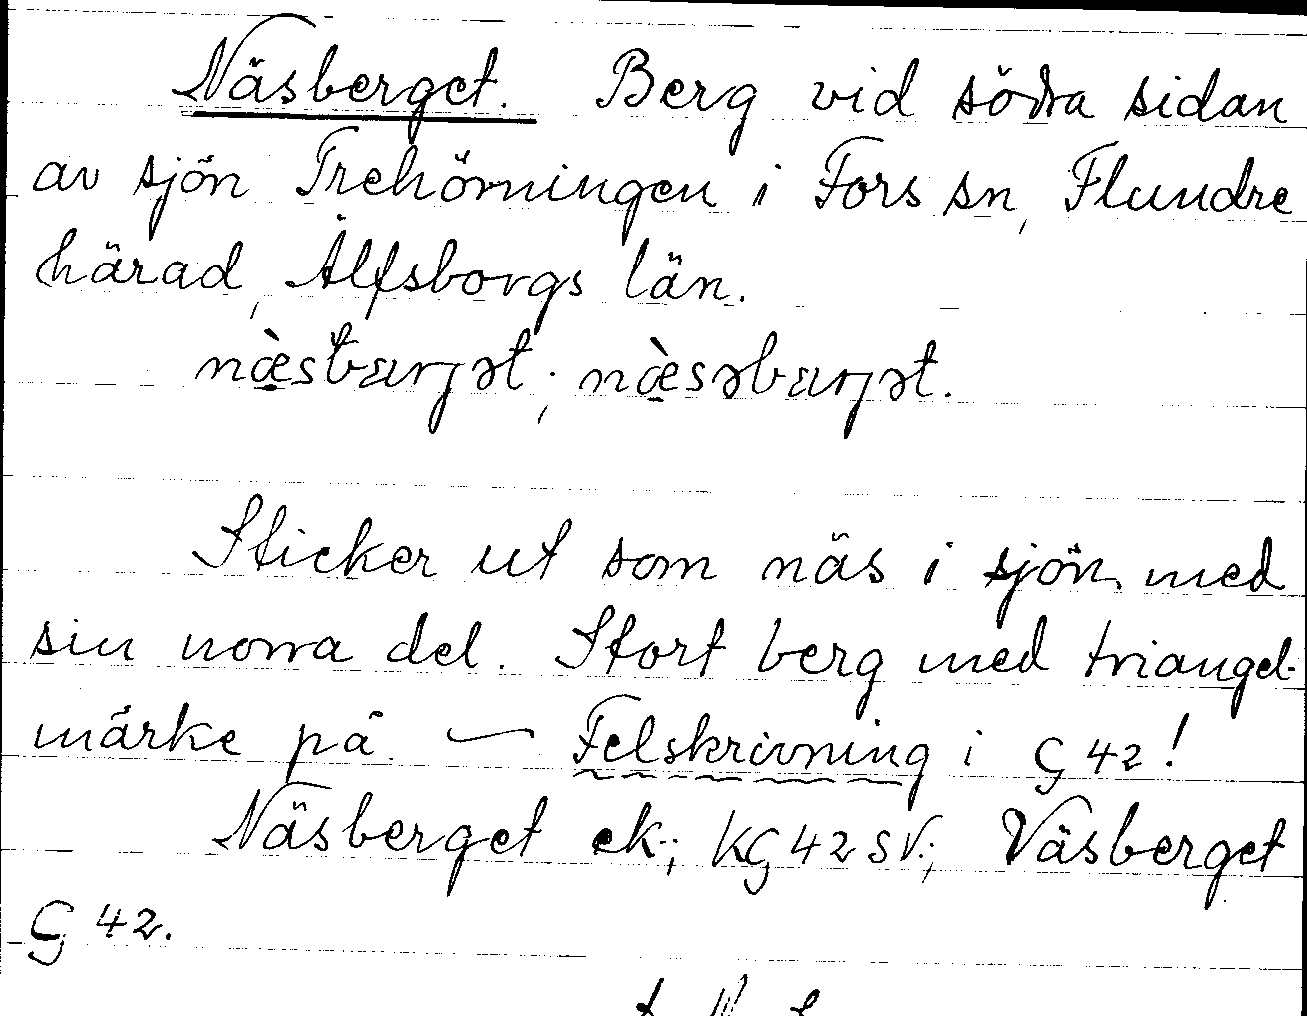 Näsberget. Berg vid södra sidan
av sjön Trehörningen i Fors sn, Flundre
härad, Älfsborgs län.
næ̀sbærjət; næ̀səbærjət.
Sticker ut som näs i sjön med
sin norra del. Stort berg med triangel-
märke på. — Felskrivning i G 42!
Näsberget ek.; KG 42 SV.; Väsberget
G 42.